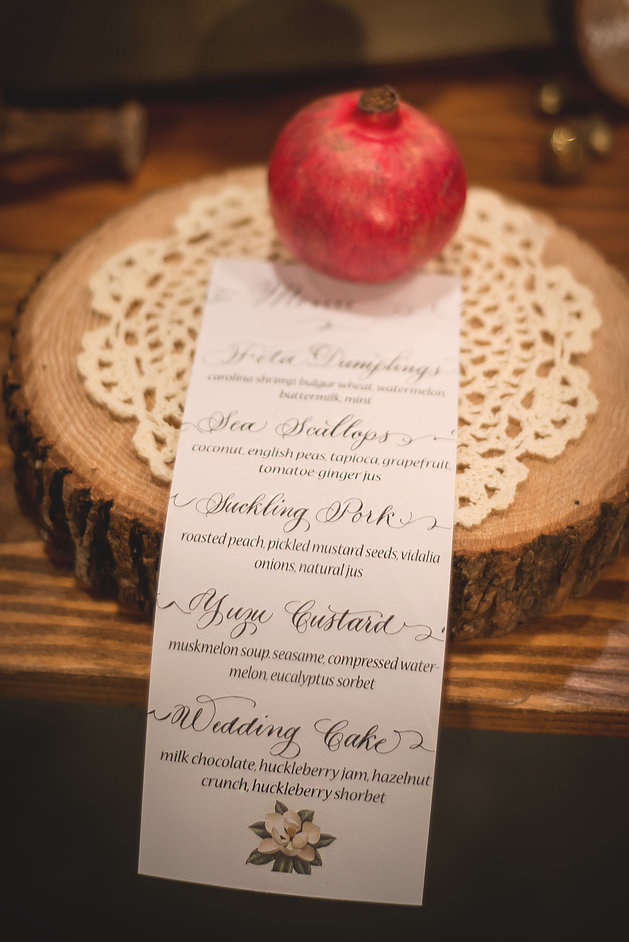 Menu
Feta Dumplings
carolina shrimp, bulgur wheat, watermelon,
buttermilk, mint
Sea Scallops
coconut, english peas, tapioca, grapefruit,
tomatoe-ginger jus
Suckling Pork
roasted peach, pickled mustard seeds, vidalia
onions, natural jus
Yuzu Custard
muskmelon soup, seasame, compressed water-
melon, eucalyptus sorbet
Wedding Cake
milk chocolate, huckleberry jam, hazelnut
crunch, huckleberry shorbet